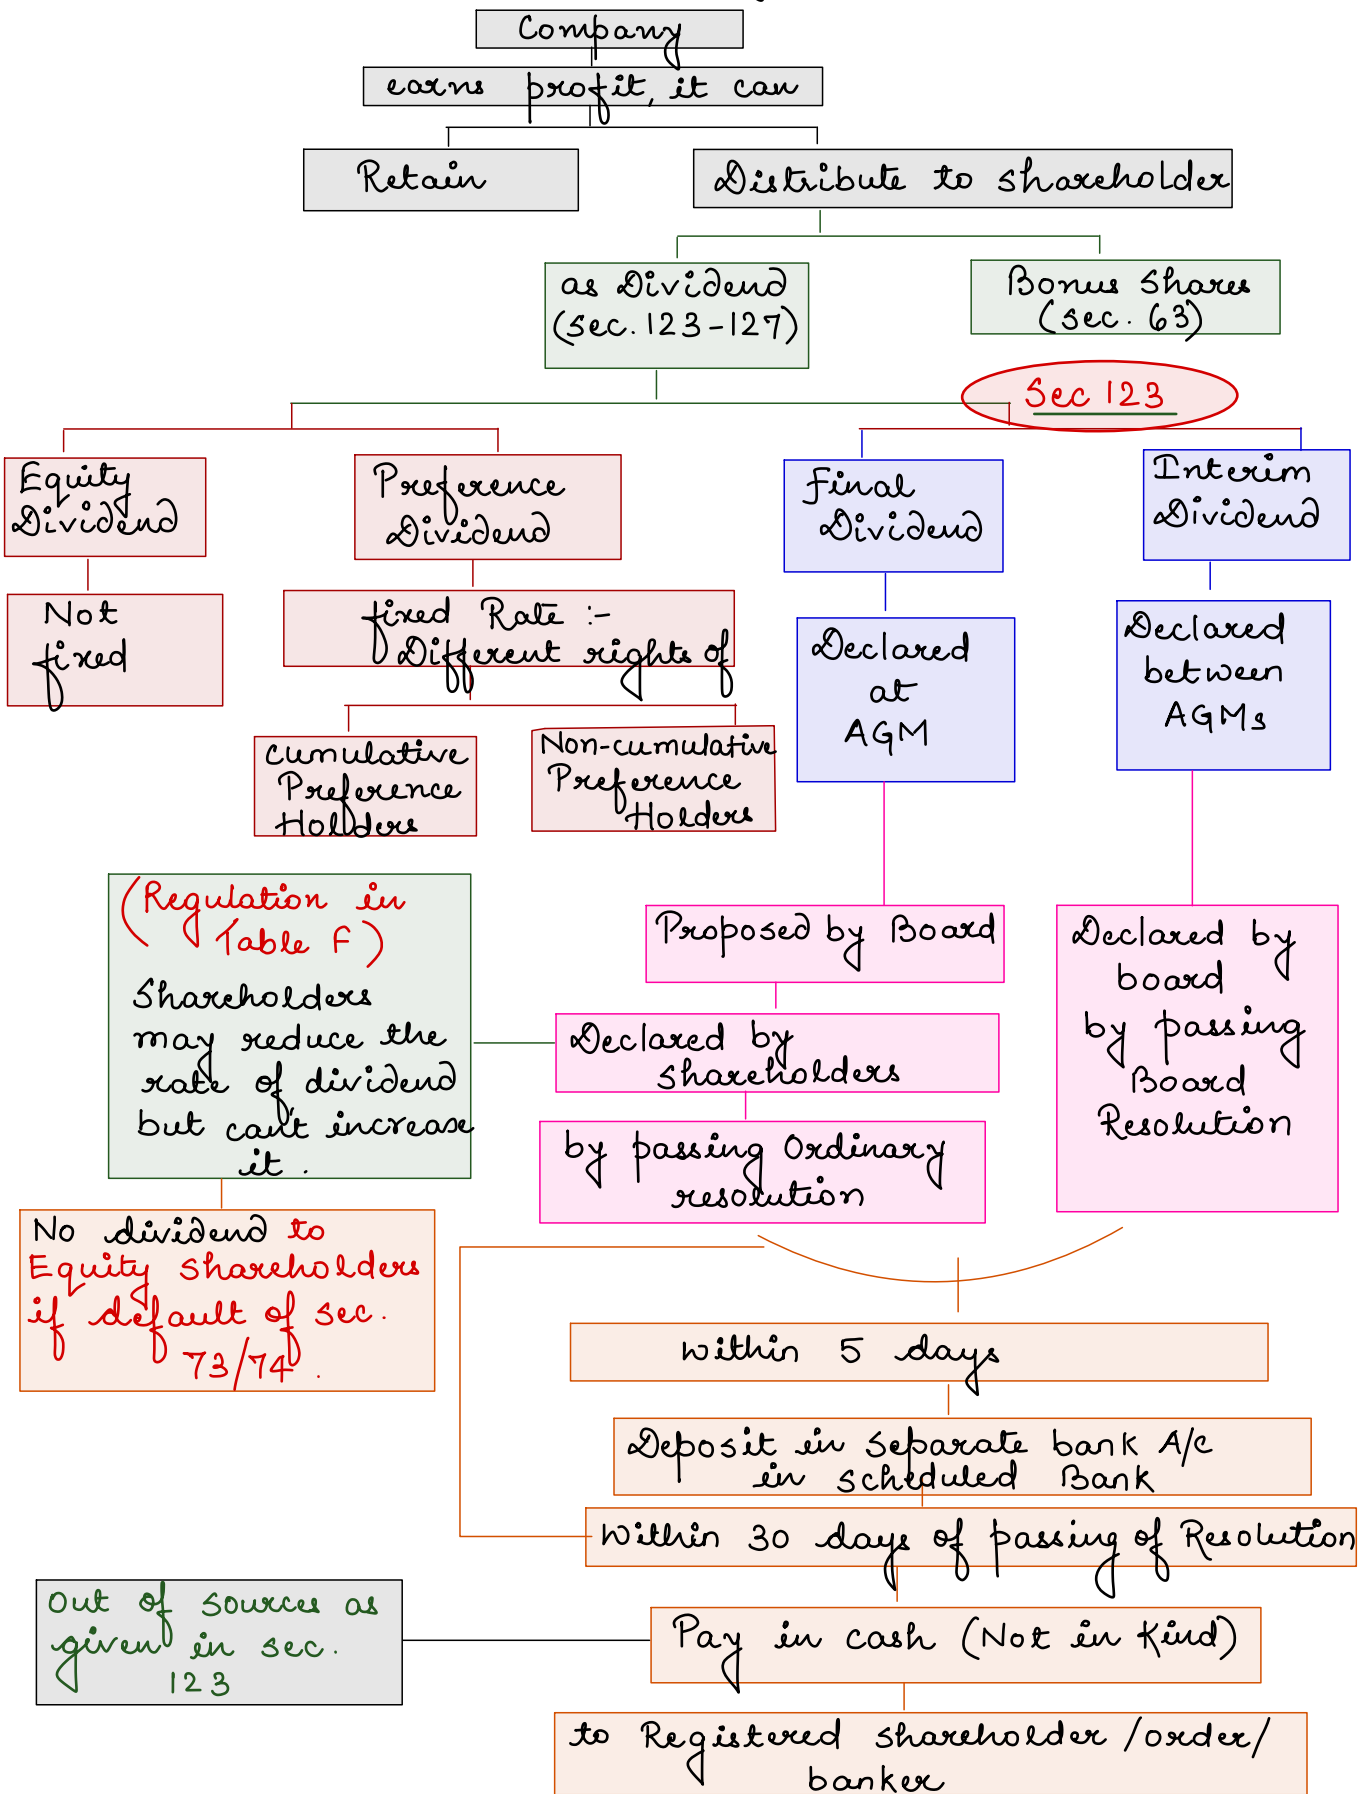 Company
earns profit, it can
Retain
Distribute to shareholder
as Dividend
(sec. 123-127)
Bonus Shares
(sec. 63)
Sec 123
Equity
Dividend
Preference
Dividend
Final
Dividend
Interim
Dividend
Not
fixed
fixed Rate :-
Different rights of
Declared
at
AGM
Declared
between
AGMs
Cumulative
Preference
Holders
Non-cumulative
Preference
Holders
(Regulation in
Table F)
Shareholders
may reduce the
rate of dividend
but can't increase
it.
Proposed by Board
Declared by
shareholders
by passing Ordinary
resolution
Declared by
board
by passing
Board
Resolution
No dividend to
Equity shareholders
if default of sec.
73/74.
within 5 days
Deposit in separate bank A/c
in scheduled Bank
Within 30 days of passing of Resolution
Out of sources as
given in sec.
123
Pay in cash (Not in Kind)
to Registered shareholder/order/
banker